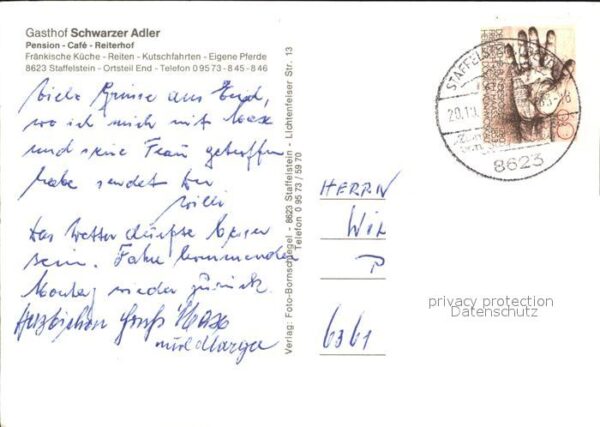 Gasthof Schwarzer Adler
Pension - Café - Reiterhof
Fränkische Küche - Reiten - Kutschfahrten - Eigene Pferde
8623 Staffelstein - Ortsteil End - Telefon 0 95 73 - 8 45 - 8 46
Viele Grüsse aus End,
wo ich mich mit Max
und seine Frau getroffen
habe sendet Dir
Willi
Das Wetter dürfte besser
sein. Fahre kommenden
Montag wieder zurück.
Herzlichen Gruß Max
und
Verlag: Foto-Bornschlegel - 8623 Staffelstein - Lichtenfelser Str. 13
Telefon 0 95 73 / 59 70
STAFFELSTEIN
20.10.
8623
80
HERRN
Wil
P
6361
privacy protection
Datenschutz